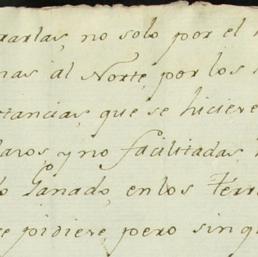 rarlas, no solo por el
nas al Norte, por los
tancias, que se hiciere
laros, y no facilitadas
Ganado, en los Térr
e pidiere, pero sin q